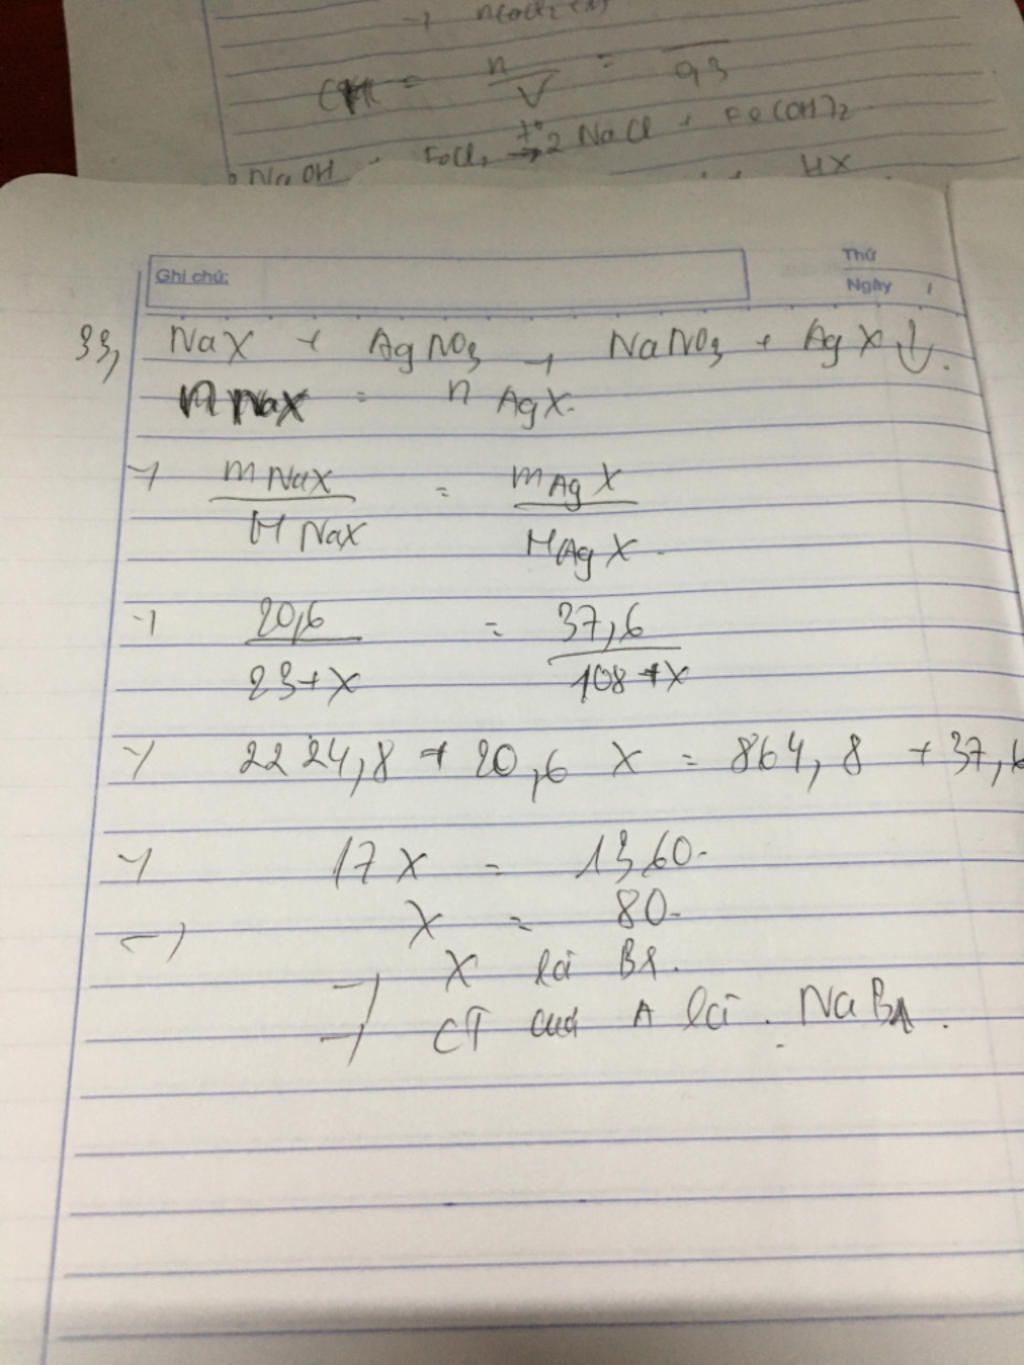 n
CM = n/V = 93
NaOH + FeCl2 t° → 2 NaCl + Fe(OH)2
HX
Ghi chú:
Thứ
Ngày /
33, NaX + AgNO3 → NaNO3 + AgX ↓.
n NaX = n AgX.
→ m NaX / M NaX = m AgX / M AgX.
→ 20,6 / 23+X = 37,6 / 108+X
→ 2224,8 + 20,6 X = 864,8 + 37,6
→ 17X = 1360.
→ X = 80.
→ X là Br.
→ CT của A là. NaBr.